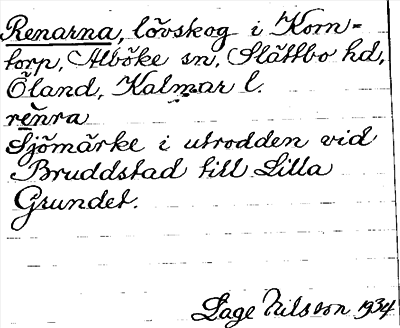 Renarna, lövskog i Korn-
torp, Alböke sn, Slättbo hd,
Öland, Kalmar l.
rènra
Sjömärke i utrodden vid
Bruddstad till Lilla
Grundet.
Lage Nilsson 1934